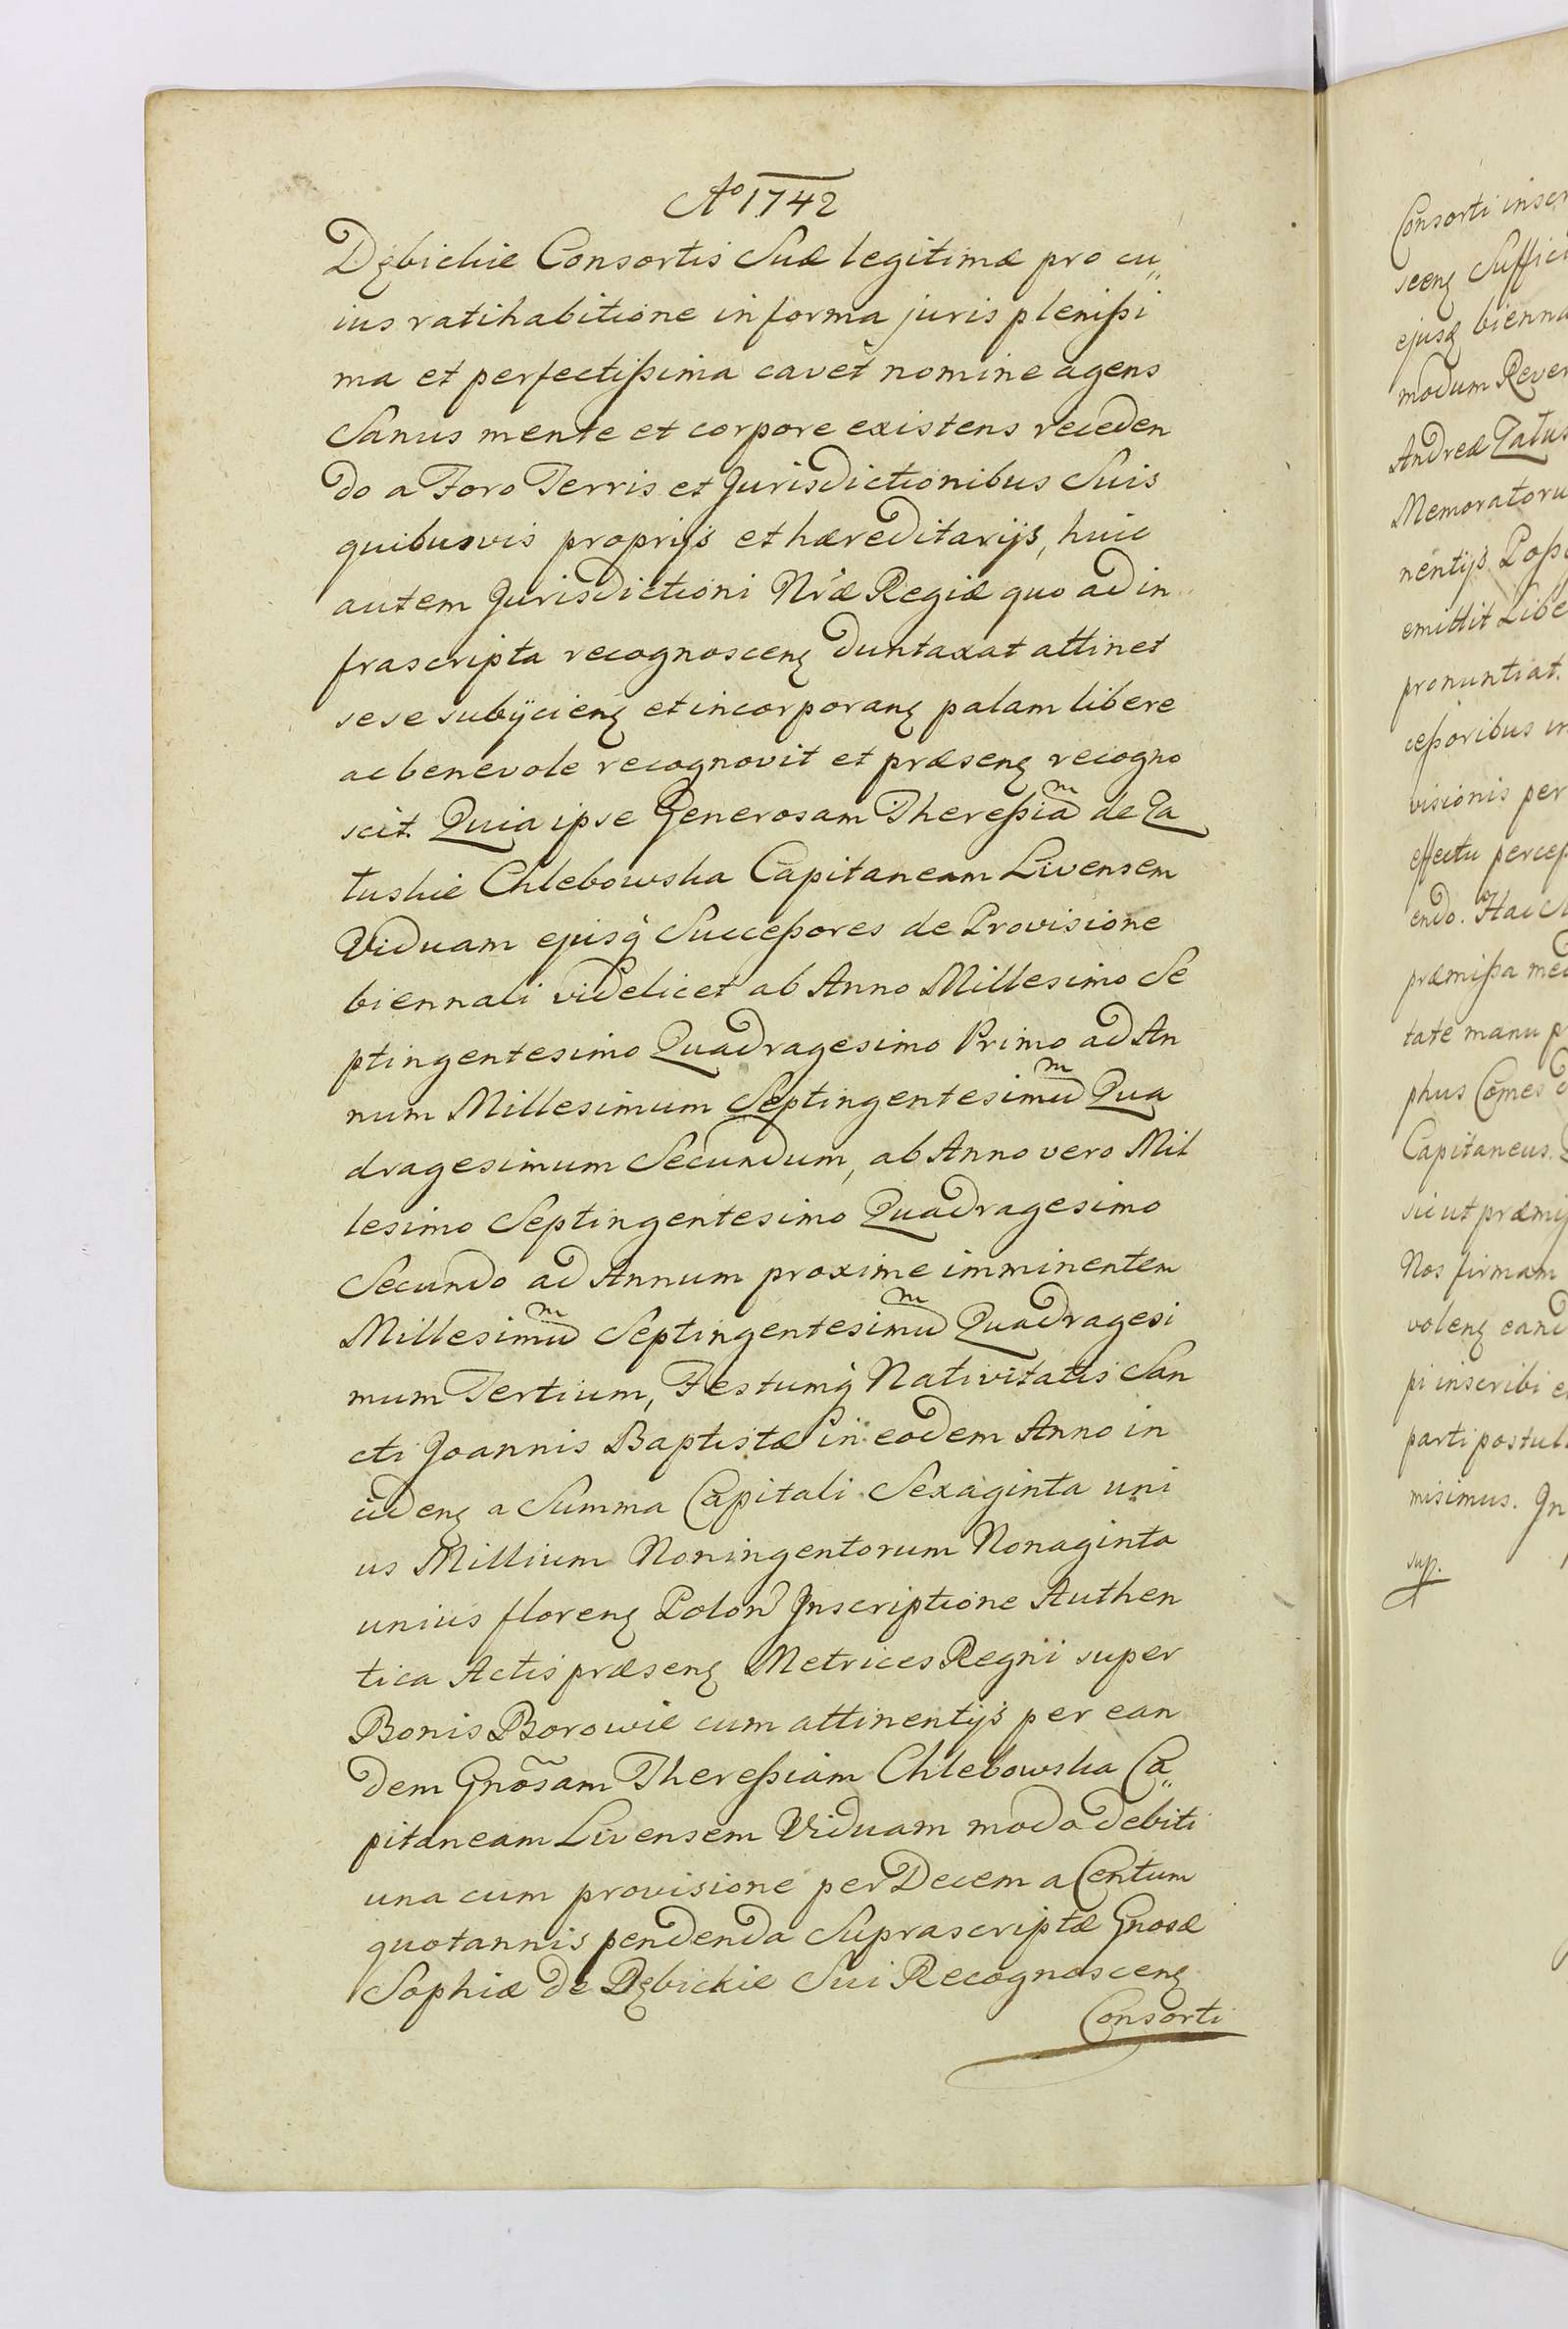 Ao 1742
Dębickie Consortis Suæ legitimæ pro cu„
ius ratihabitione in forma juris plenißi
ma et perfectißima cavet nomine agens
Sanus mente et corpore existens receden
do a Foro Terris et Jurisdictionibus Suis
quibusvis proprijs et hæreditarijs, huic
autem Jurisdictioni Nræ Regiæ quo ad in
frascripta recognoscenę duntaxat attinet
sese subÿcienę et incorporanę palam libere
ac benevole recognovit et præsenę recogno
scit. Quia ipse Generosam Thereßiam de Za
tuskie Chlebowska Capitaneam Livensem
Viduam ejusq Succeßores de Provisione
biennali videlicet ab Anno Millesimo Se
ptingentesimo Quadragesimo Primo ad An
num Millesimum Septingentesimum Qua
dragesimum Secundum, ab Anno vero Mil
lesimo Septingentesimo Quadragesimo
Secundo ad Annum proxime imminentem
Millesimum Septingentesimum Quadragesi
mum Tertium, Festumq Nativitatis San
cti Joannis Baptistæ in eodem Anno in
cidenę a Summa Capitali Sexaginta uni
us Millium Noningentorum Nonaginta
unius florenę Polon Inscriptione Authen
tica Actis præsenę Metrices Regni super
Bonis Borowie cum attinentijs per ean
dem Gnõsam Thereßiam Chlebowska Ca„
pitaneam Livensem Viduam modo debiti
una cum provisione per Decem a Centum
quotannis pendenda Suprascriptæ Gnosæ
Sophiæ de Dębickie Sui Recognoscenę
Consorti
Consorti
scenę
ejusq
modum
Andreæ
nentijs
emittit
pronuntiat.
ceßoribus
visionis per
effectu
endo. Hac
præmißa
tate manu
phus Comes
Capitaneus.
sicut
Nos firmam
volenę
pi inscribi
parti
misimus. In
sup.